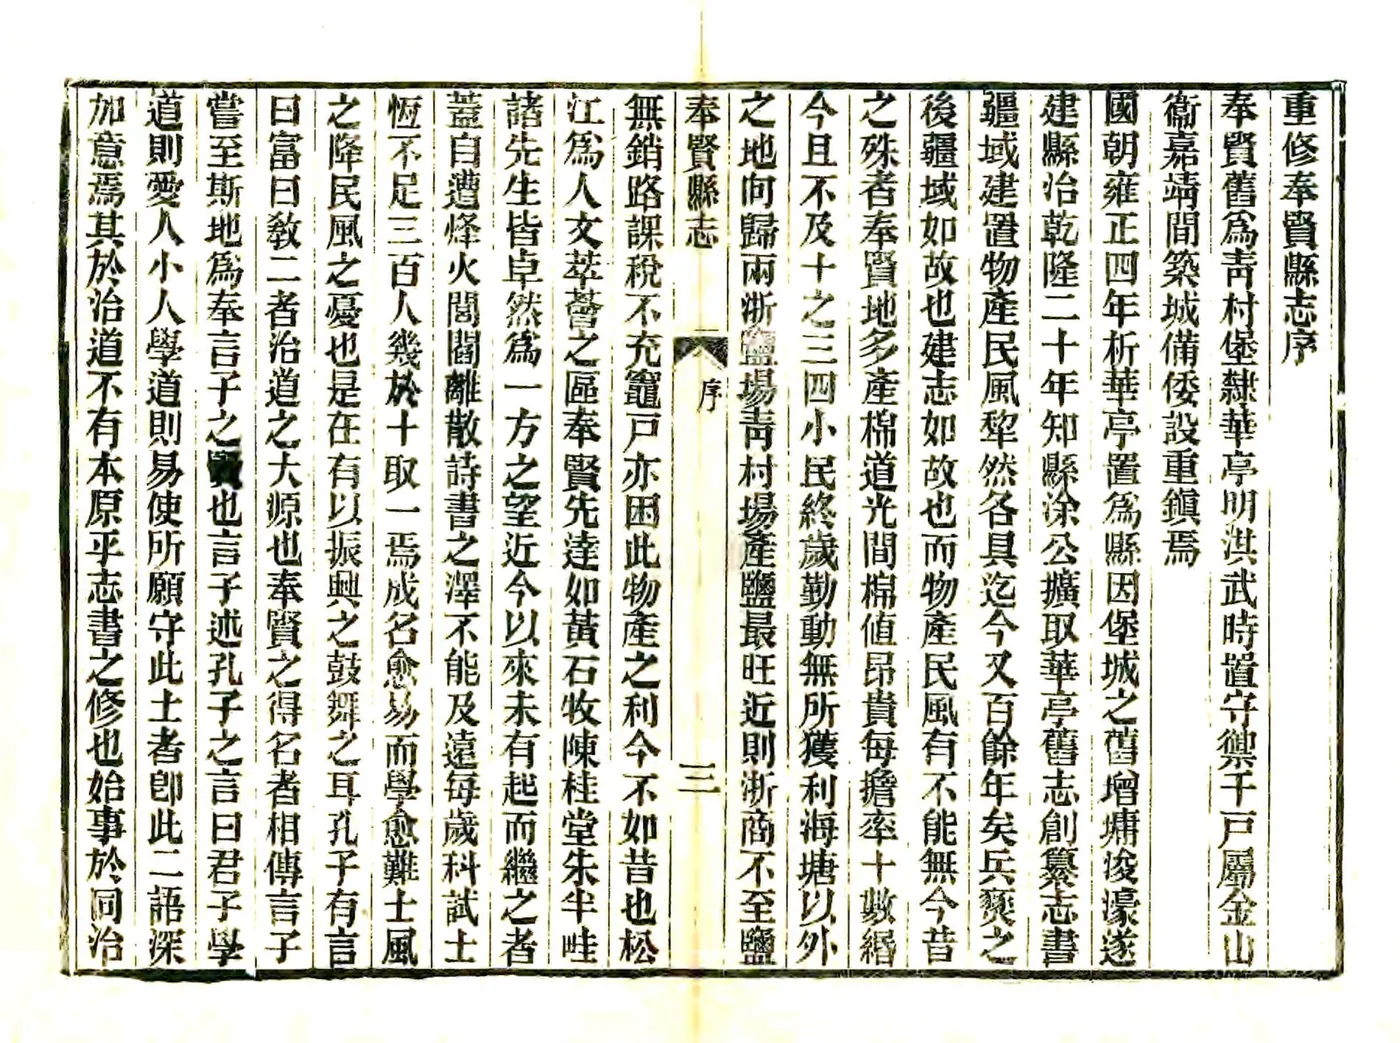 重修奉賢縣志序
奉賢舊爲靑村堡隸華亭明洪武時置守禦千戸屬金山
衞嘉靖間築城備倭設重鎭焉
國朝雍正四年析華亭置爲縣因堡城之舊增墉浚濠遂
建縣治乾隆二十年知縣涂公擴取華亭舊志創纂志書
疆域建置物產民風犂然各具迄今又百餘年矣兵燹之
後疆域如故也建志如故也而物產民風有不能無今昔
之殊者奉賢地多產棉道光間棉値昂貴每擔率十數緡
今且不及十之三四小民終歲勤動無所獲利海塘以外
之地向歸兩浙鹽場靑村場產鹽最旺近則浙商不至鹽
奉賢縣志
序
三
無銷路課稅不充竈戸亦困此物產之利今不如昔也松
江爲人文萃薈之區奉賢先達如黃石牧陳桂堂朱半畦
諸先生皆卓然爲一方之望近今以來未有起而繼之者
蓋自遭烽火閭閻離散詩書之澤不能及遠每歲科試士
恆不足三百人幾於十取一焉成名愈易而學愈難士風
之降民風之憂也是在有以振興之鼓舞之耳孔子有言
曰富曰敎二者治道之大源也奉賢之得名者相傳言子
嘗至斯地爲奉言子之賢也言子述孔子之言曰君子學
道則愛人小人學道則易使所願守此土者卽此二語深
加意焉其於治道不有本原乎志書之修也始事於同治